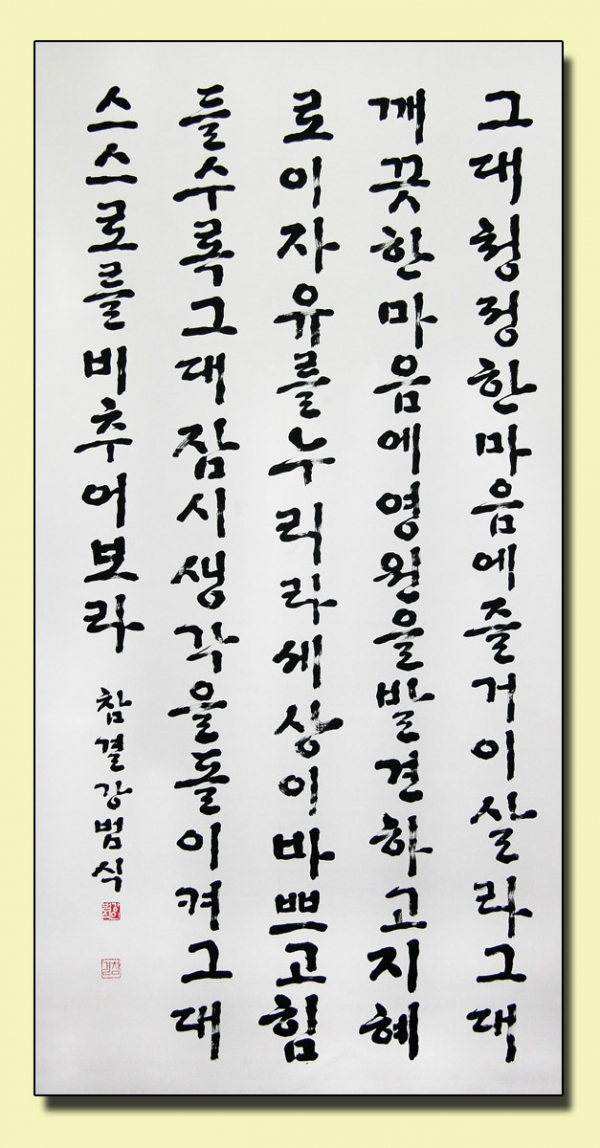 그대청정한마음에즐거이살라그대
깨끗한마음에영원을발견하고지혜
로이자유를누리라세상이바쁘고힘
들수록그대잠시생각을돌이켜그대
스스로를비추어보라 참결강범식